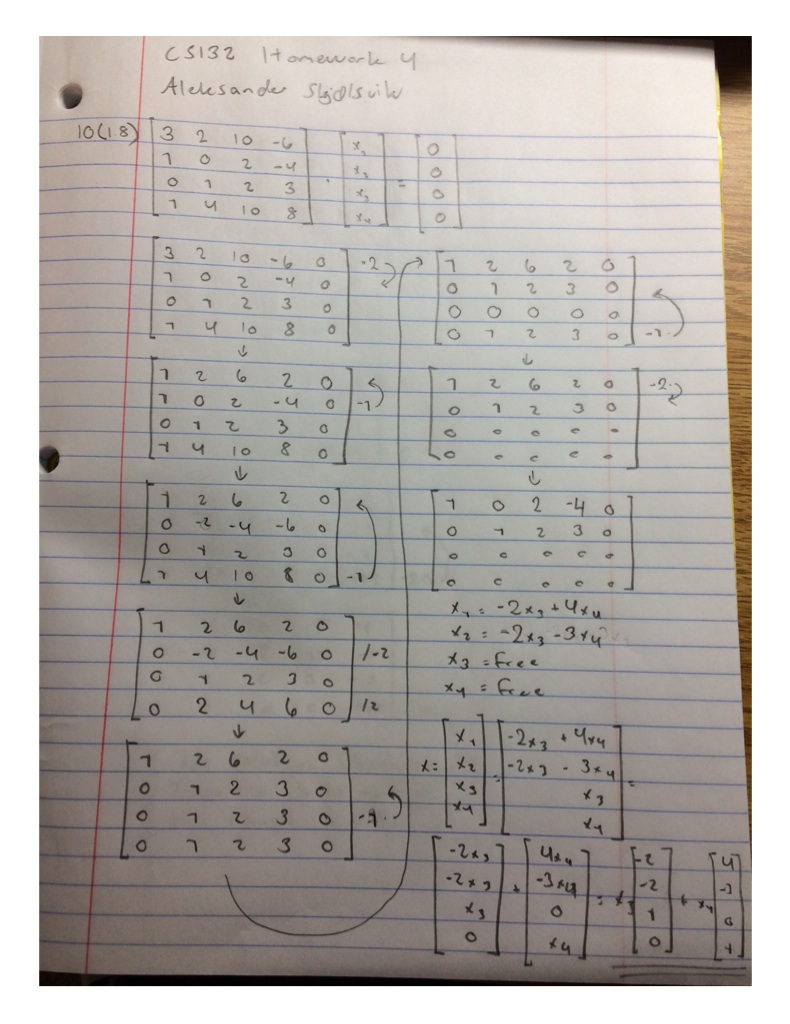 CS132 Homework 4
Aleksander
10(1.8) [3 2 10 -6; 1 0 2 -4; 0 1 2 3; 1 4 10 8] · [x₁; x₂; x₃; x₄] = [0; 0; 0; 0]
[3 2 10 -6 0] -2
[1 0 2 -4 0]
[0 1 2 3 0]
[1 4 10 8 0]
↓
[1 2 6 2 0]
[1 0 2 -4 0] -1
[0 1 2 3 0]
[1 4 10 8 0]
↓
[1 2 6 2 0]
[0 -2 -4 -6 0]
[0 1 2 3 0]
[1 4 10 8 0] -1
↓
[1 2 6 2 0]
[0 -2 -4 -6 0] /-2
[0 1 2 3 0]
[0 2 4 6 0] /2
↓
[1 2 6 2 0]
[0 1 2 3 0]
[0 1 2 3 0] -1·
[0 1 2 3 0]
→
[1 2 6 2 0]
[0 1 2 3 0]
[0 0 0 0 0]
[0 1 2 3 0] -1·
↓
[1 2 6 2 0] -2·
[0 1 2 3 0]
[0 0 0 0 0]
[0 0 0 0 0]
↓
[1 0 2 -4 0]
[0 1 2 3 0]
[0 0 0 0 0]
[0 0 0 0 0]
x₁ = -2x₃ + 4x₄
x₂ = -2x₃ - 3x₄
x₃ = free
x₄ = free
x = [x₁; x₂; x₃; x₄] = [-2x₃ + 4x₄; -2x₃ - 3x₄; x₃; x₄] =
[-2x₃; -2x₃; x₃; 0] + [4x₄; -3x₄; 0; x₄] = x₃ [-2; -2; 1; 0] + x₄ [4; -3; 0; 1]